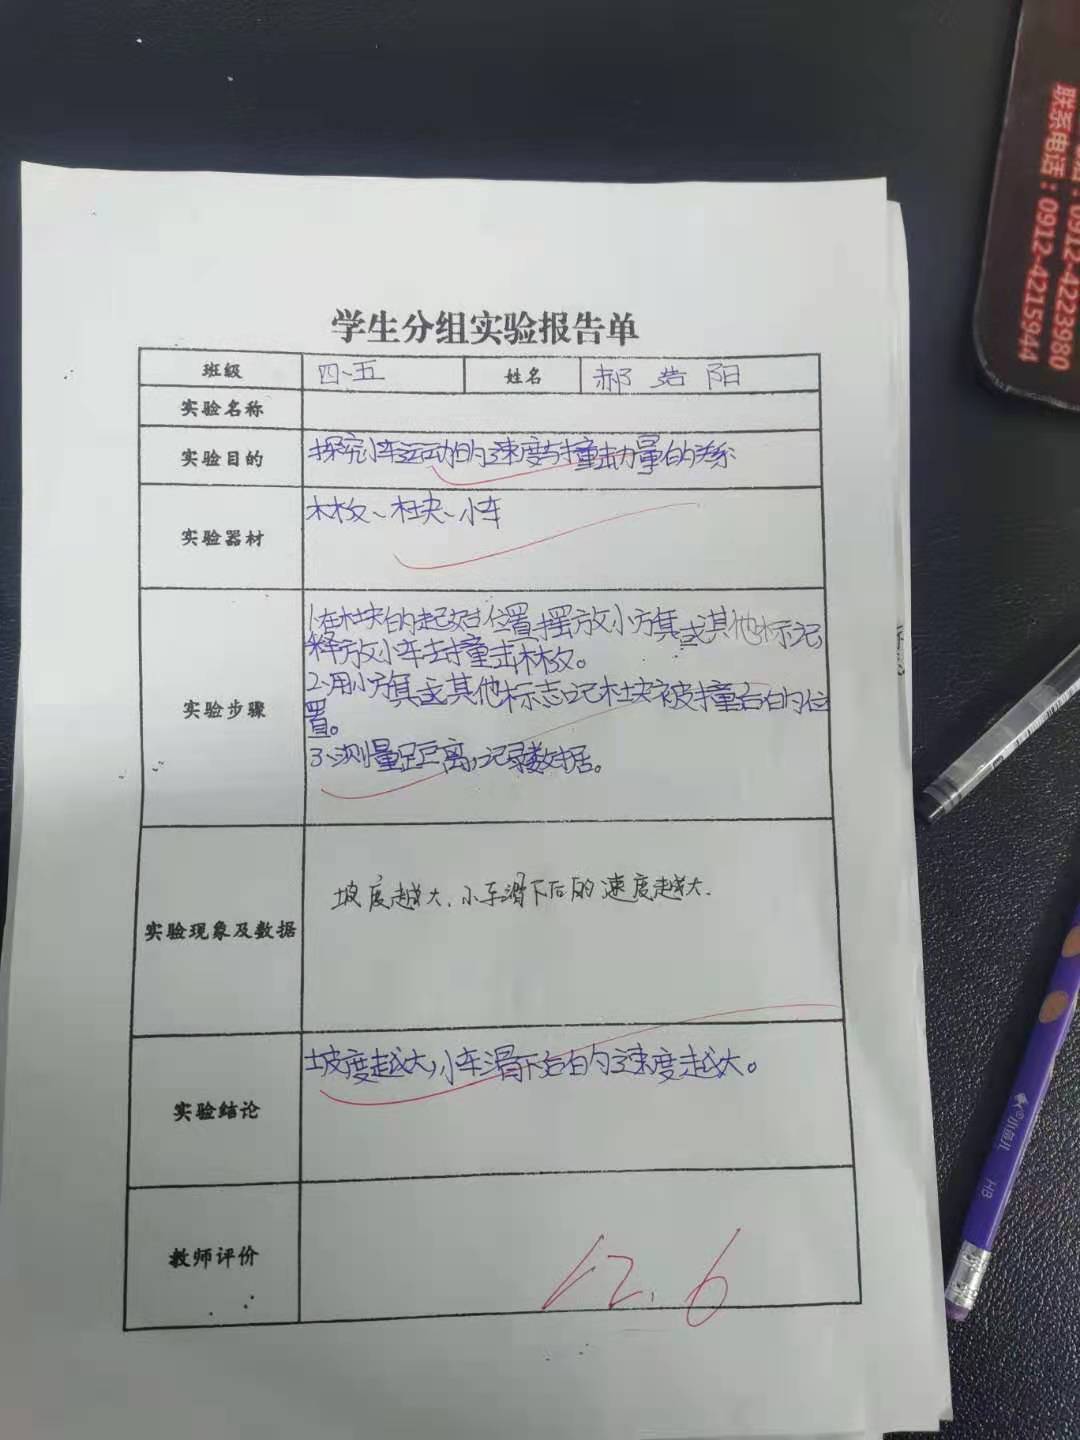 联系电话：0912-4215944
0912-4223980
学生分组实验报告单
班级 四、五 姓名 郝浩阳
实验名称
实验目的 探究小车运动的速度与撞击力量的关系
实验器材 木板、木块、小车
实验步骤
1.在木块的起始位置摆放小方旗或其他标记
释放小车去撞击木板。
2、用小方旗或其他标志记木块被撞后的位
置。
3、测量距离,记录数据。
实验现象及数据 坡度越大,小车滑下后的速度越大.
实验结论 坡度越大,小车滑下后的速度越大。
教师评价 12.6
小流儿
HB